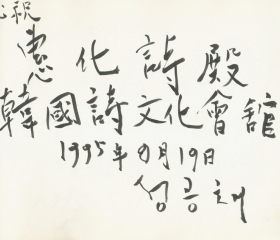 祝
惠化詩殿
韓國詩文化會館
1995年 9月19日
정공채